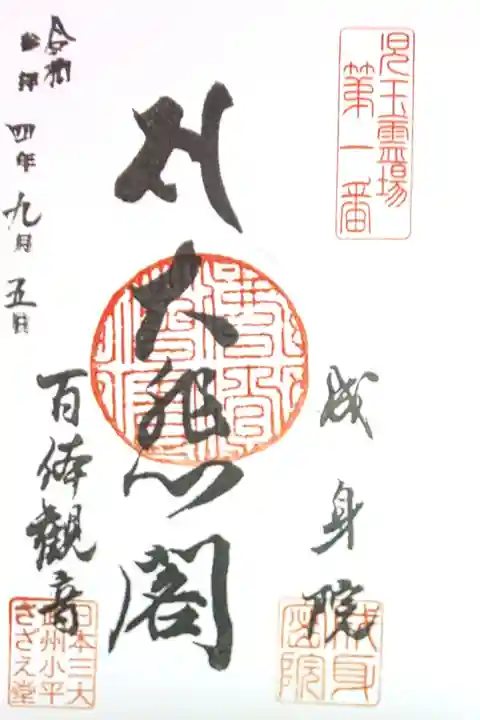 児玉霊場
第一番
成身院
成身
密院
大悲閣
百体観音
令和四年九月五日
日本三大
武州小平
さざえ堂